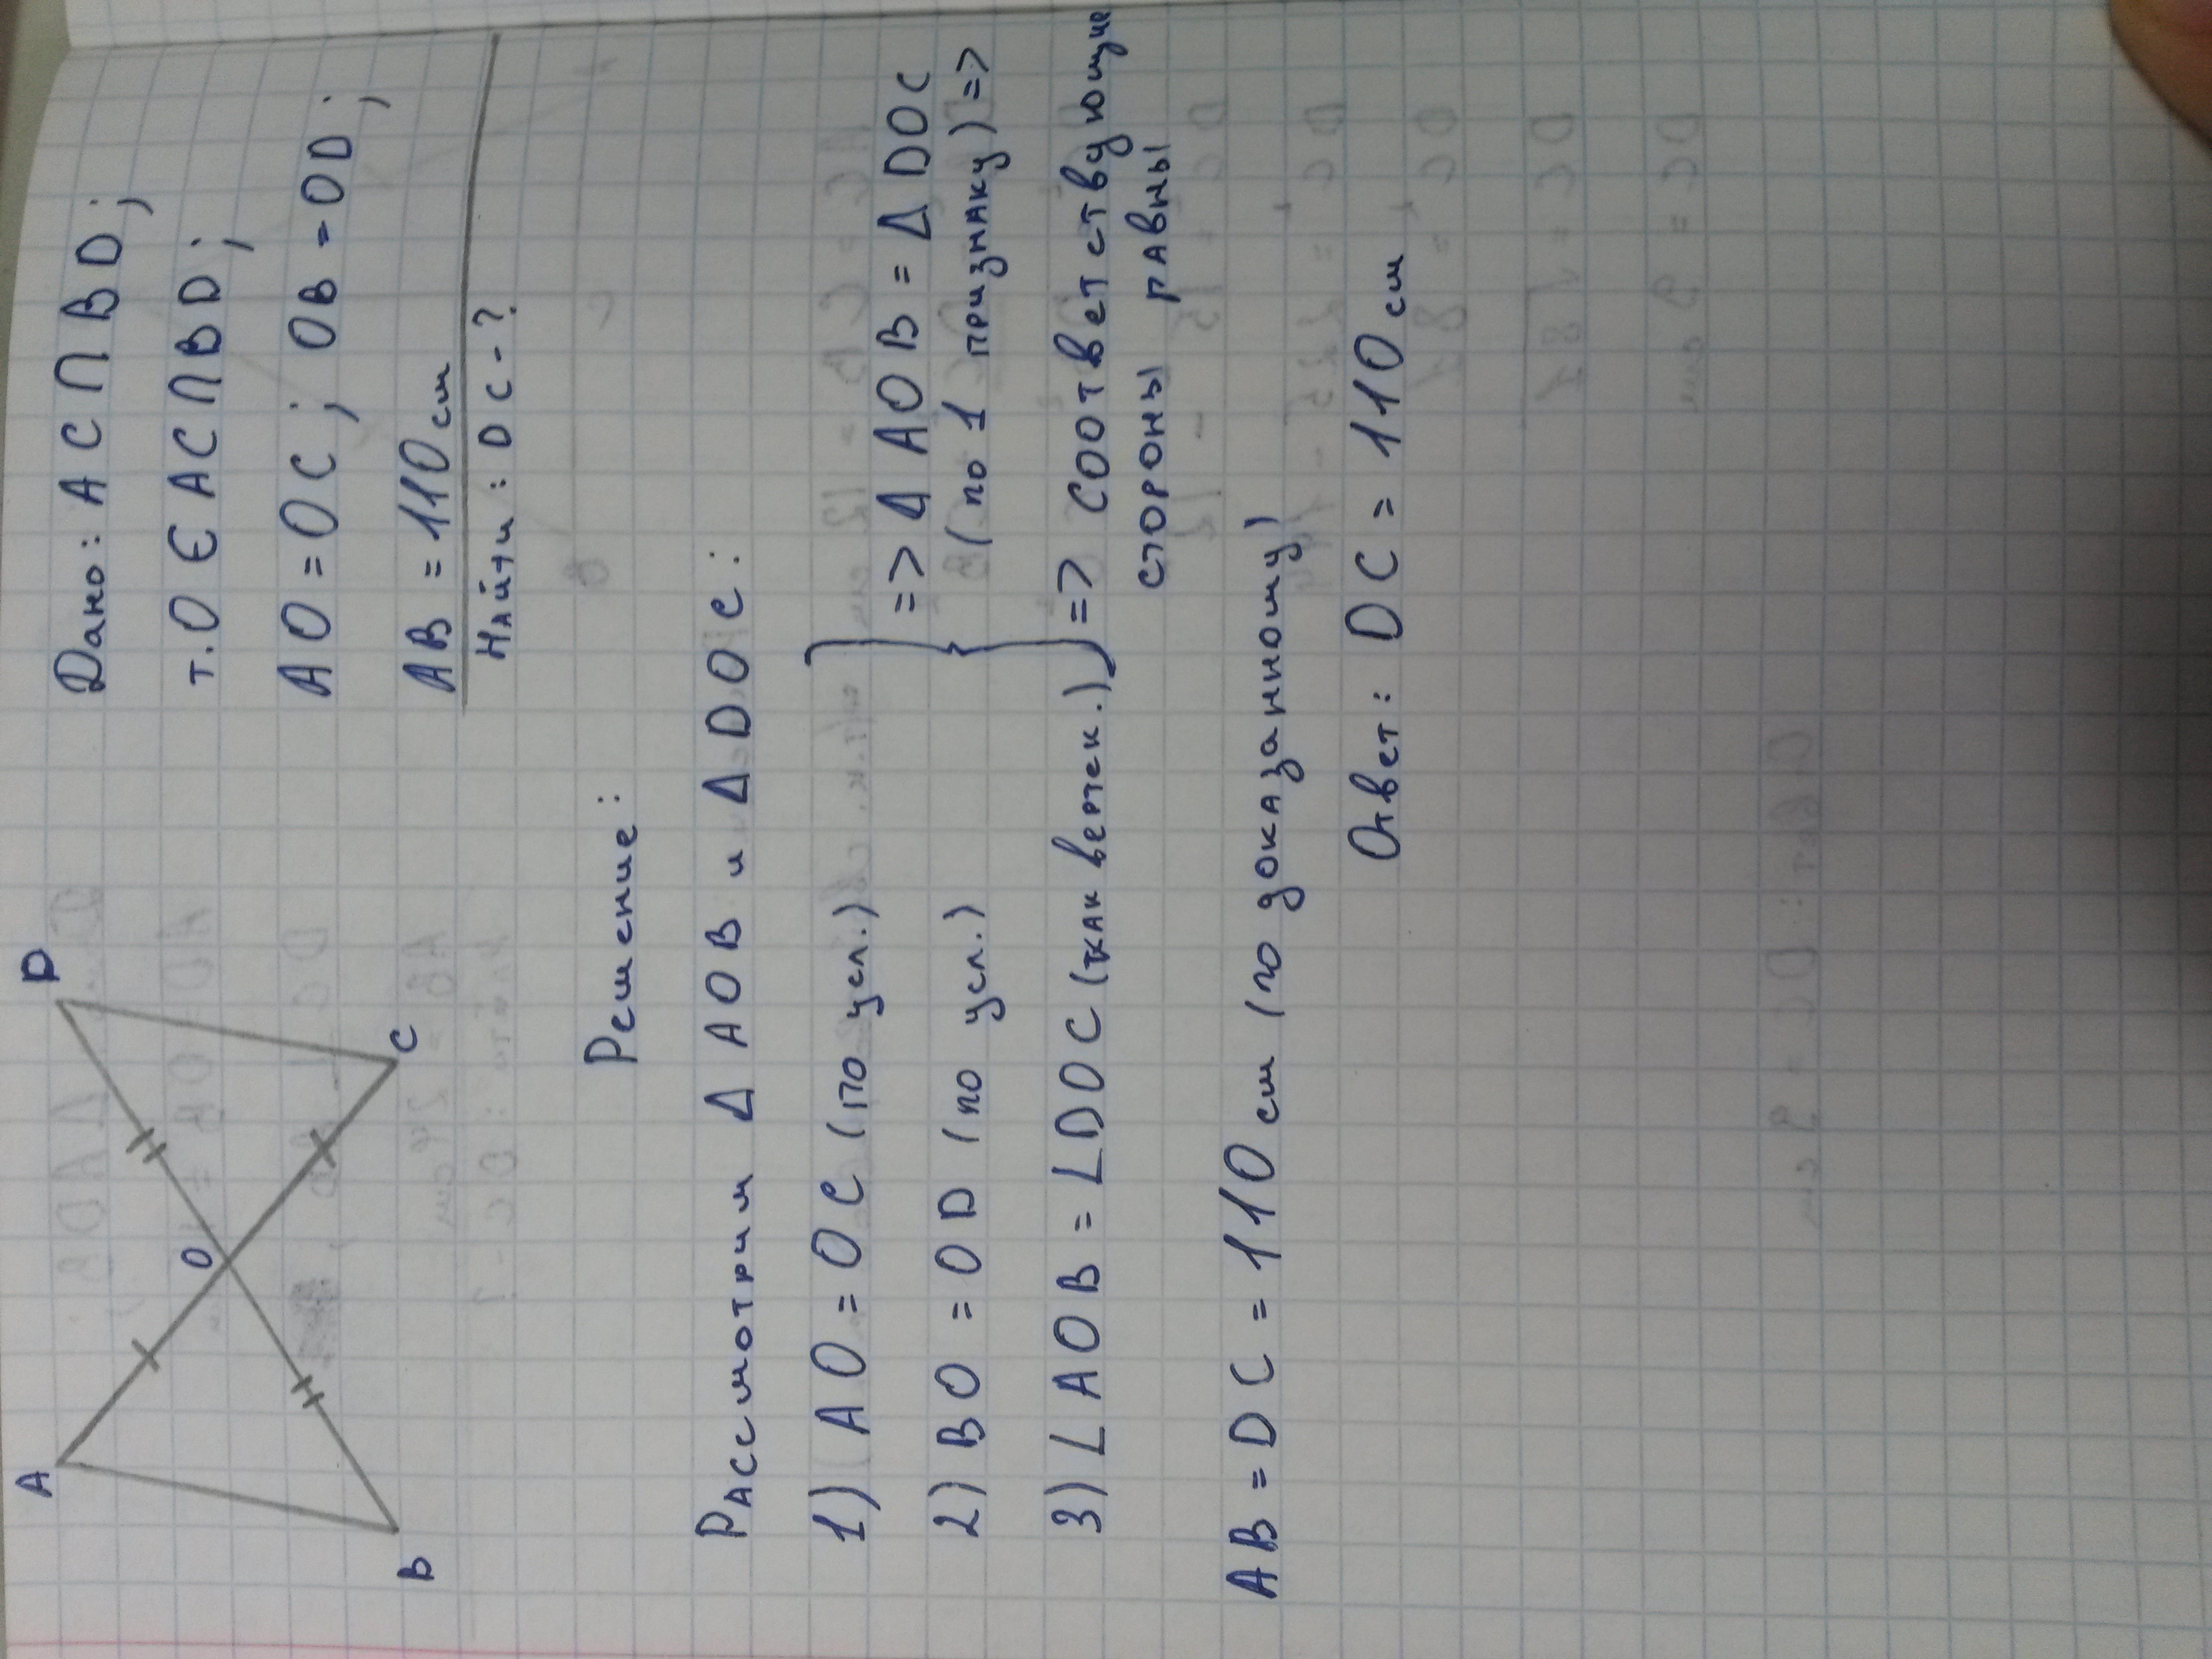 A
D
O
B
C
Дано: AC ∩ BD;
т. O ∈ AC ∩ BD;
AO = OC; OB = OD;
AB = 110 см
Найти: DC - ?
Решение:
Рассмотрим Δ AOB и Δ DOC:
1) AO = OC (по усл.)
2) BO = OD (по усл.)
3) ∠AOB = ∠DOC (как вертек.)
=> Δ AOB = Δ DOC
(по 1 признаку) =>
=> соответствующие
стороны равны
AB = DC = 110 см (по доказанному)
Ответ: DC = 110 см